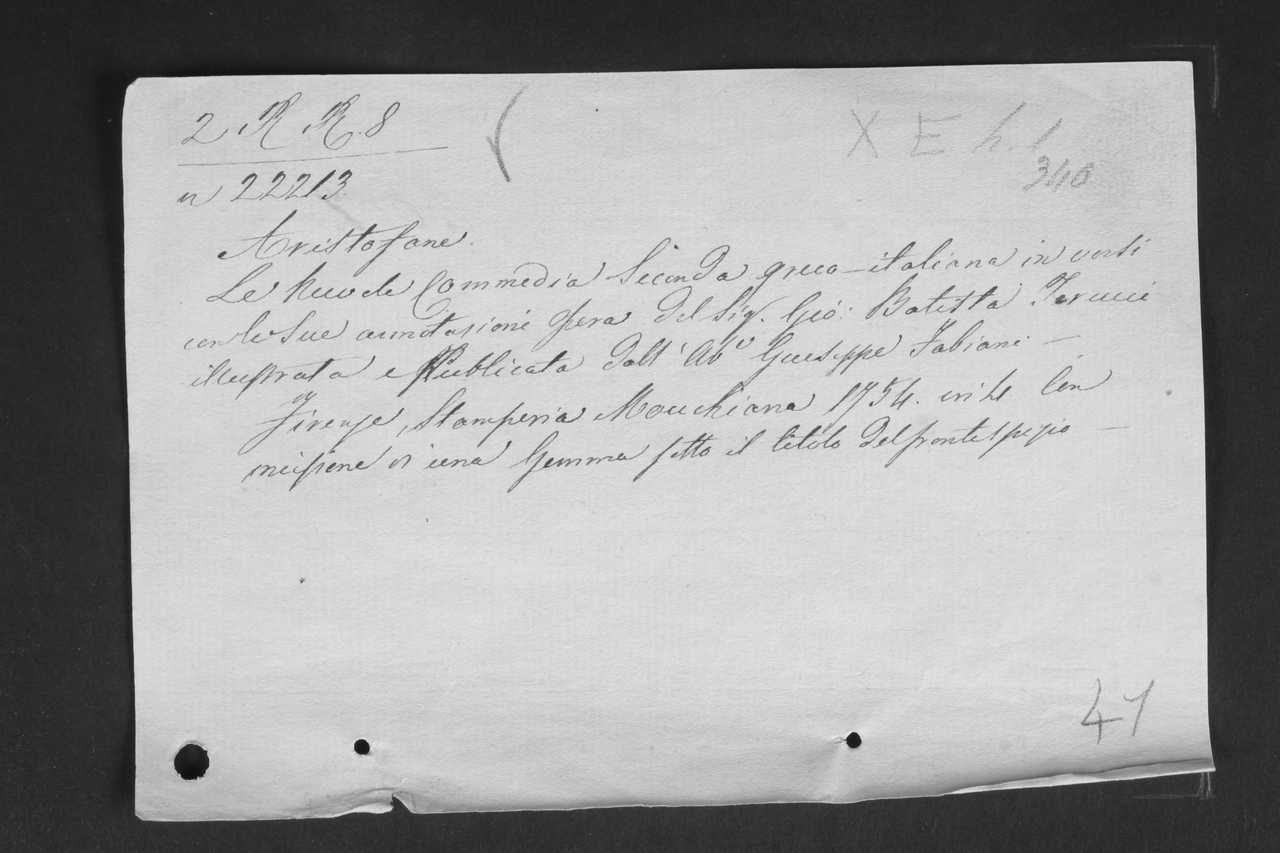 2 R R. 8
X E h. 1
340
n 22213.
Aristofane.
Le Nuvole Commedia Seconda greco-italiana in versi
con le Sue annotazioni opera del Sig. Gio: Batista Terucci
illustrata e Pubblicata dall' Ab.e Giuseppe Fabiani —
Firenze, Stamperia Mouchiana 1754. in 4 Con
incisione di una Gemma sotto il titolo del frontespizio —
47